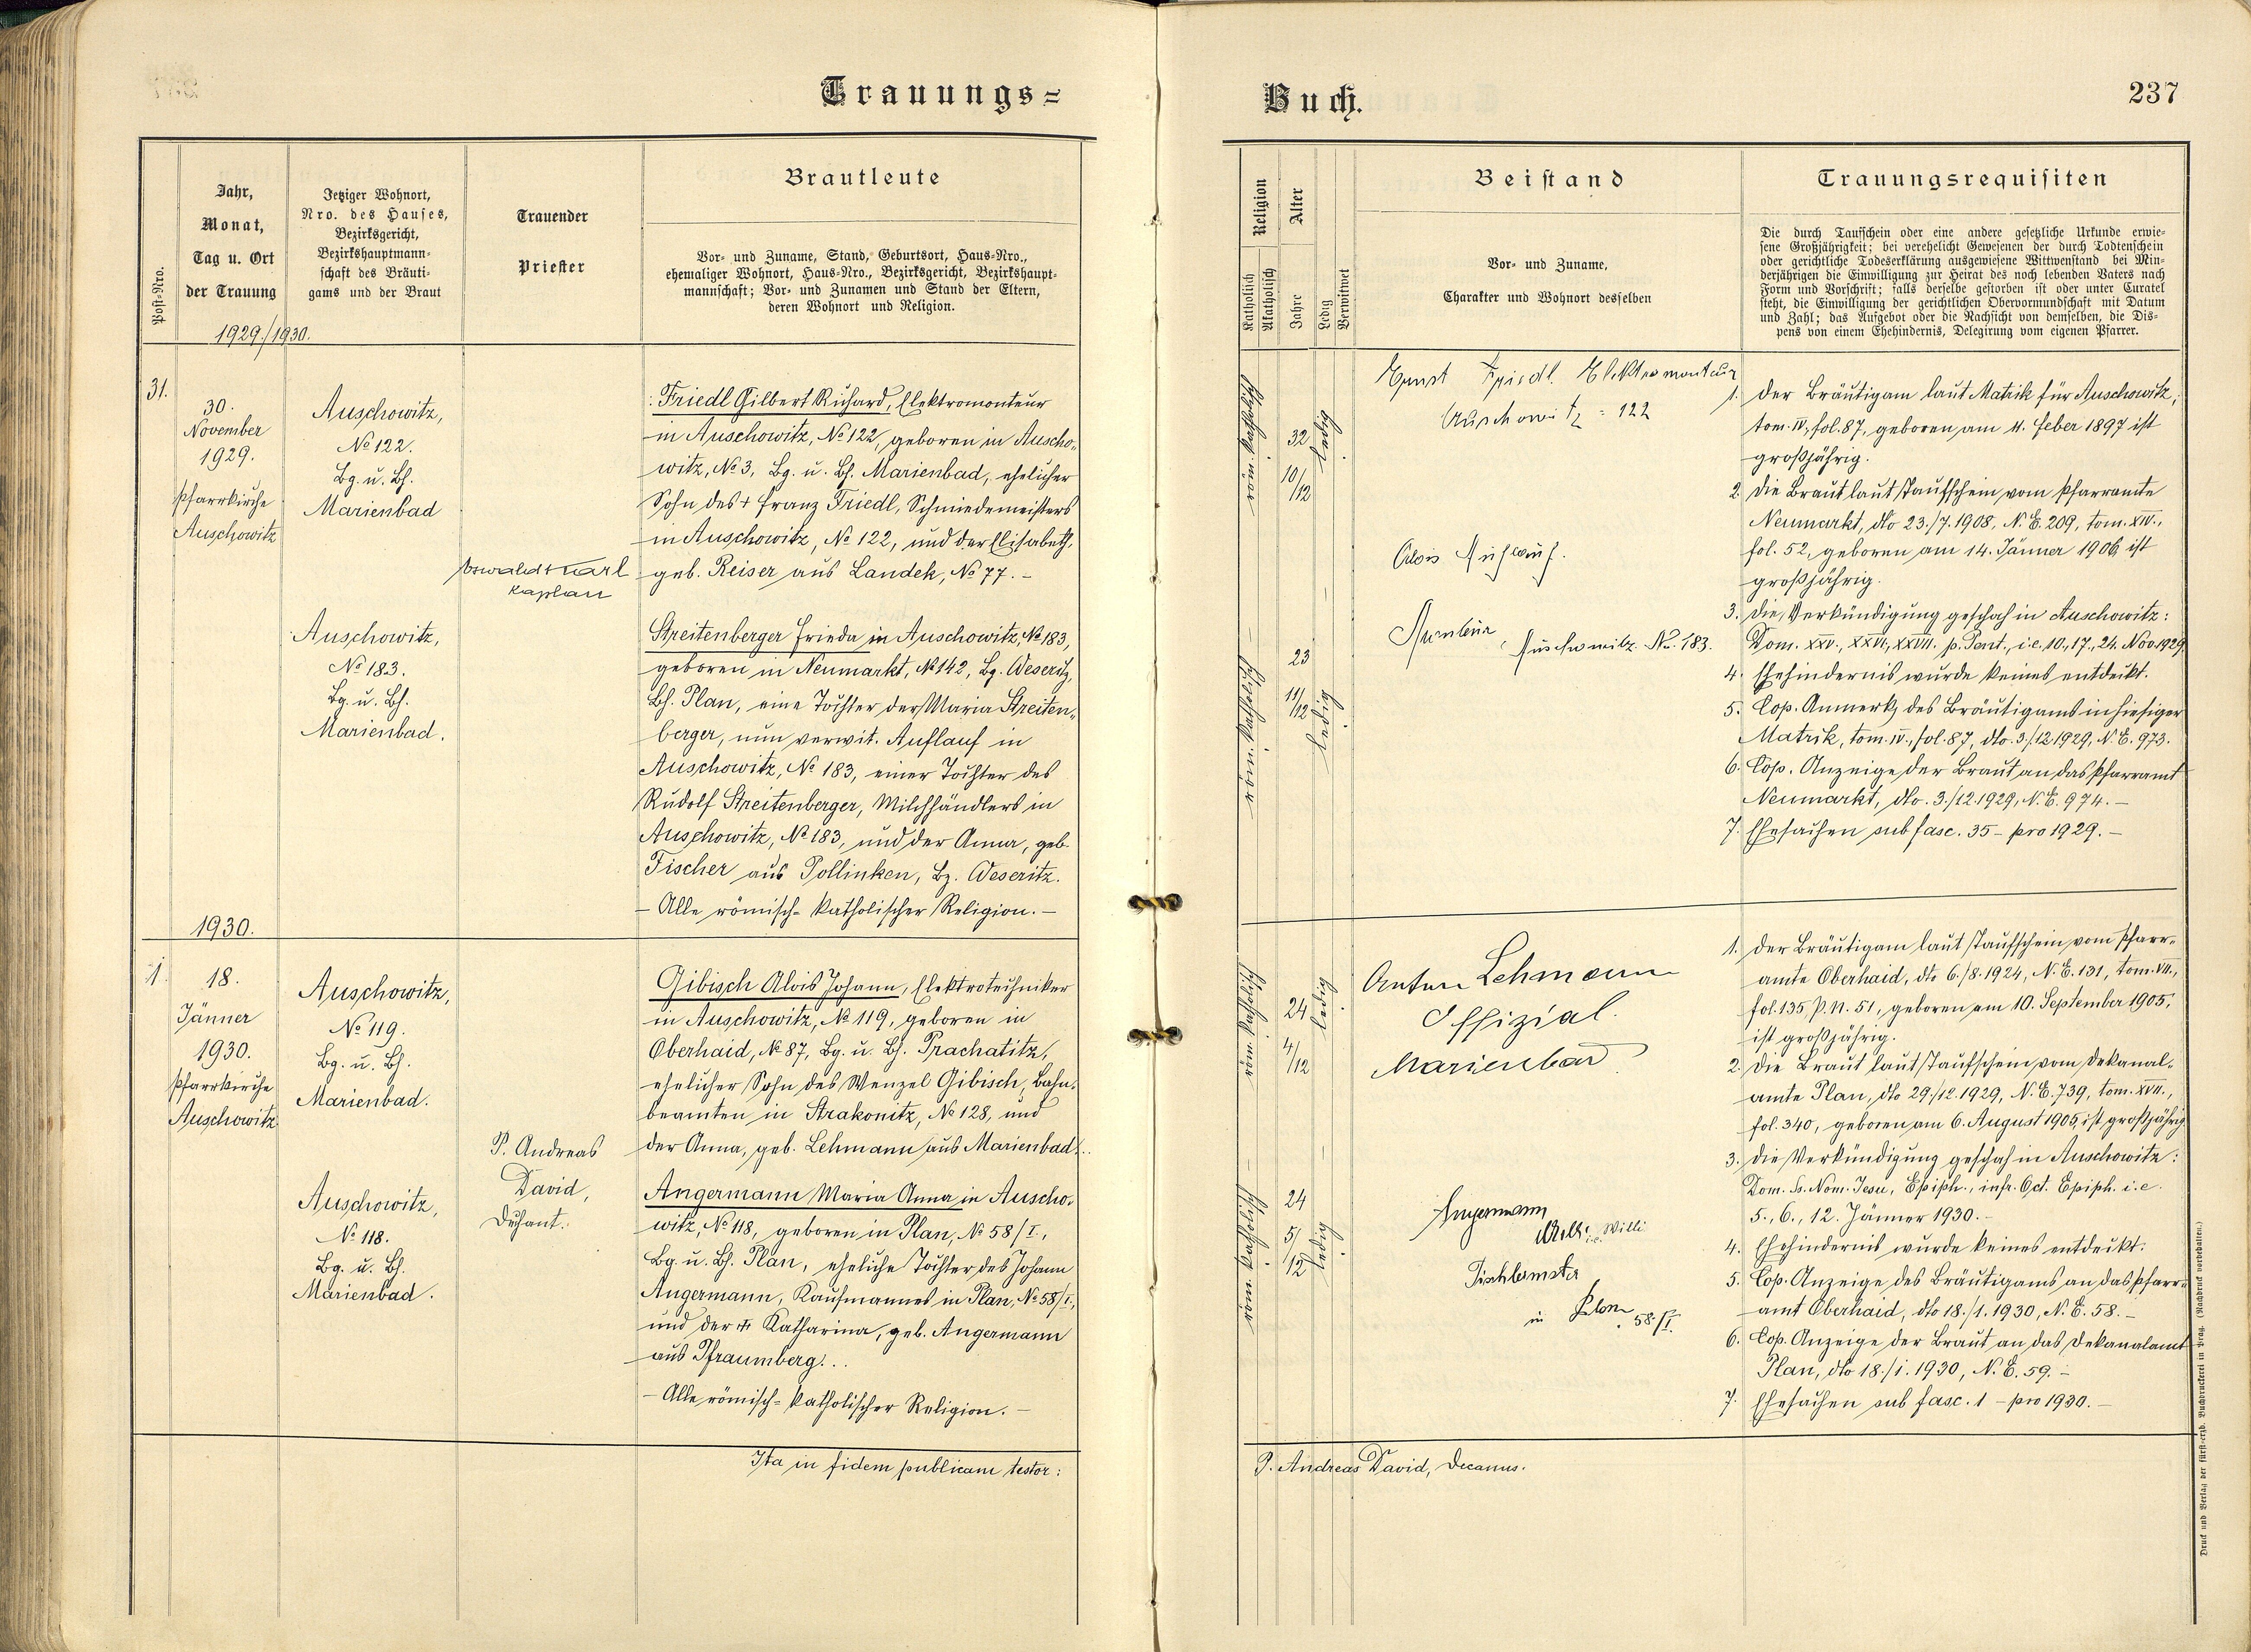 Trauungs=
Post-Nro.
Jahr,
Monat,
Tag u. Ort
der Trauung
1929./1930.
Jetziger Wohnort,
Nro. des Hauses,
Bezirksgericht,
Bezirkshauptmann-
schaft des Bräuti-
gams und der Braut
Trauender
Priester
Brautleute
Vor- und Zuname, Stand, Geburtsort, Haus-Nro.,
ehemaliger Wohnort, Haus-Nro., Bezirksgericht, Bezirkshaupt-
mannschaft; Vor- und Zunamen und Stand der Eltern,
deren Wohnort und Religion.
31.
30.
November
1929.
Pfarrkirche
Auschowitz
Auschowitz,
No 122.
Bg. u. Bh.
Marienbad
Oswald Karl
Kaplan
Friedl Gilbert Richard, Elektromonteur
in Auschowitz, No 122, geboren in Auscho-
witz, No 3, Bg. u. Bh. Marienbad, ehelicher
Sohn des + Franz Friedl, Schmiedemeisters
in Auschowitz, No 122, und der Elisabeth,
geb. Reiser aus Landek, No 77. –
Auschowitz,
No 183.
Bg. u. Bh.
Marienbad.
Streitenberger Frieda in Auschowitz, No 183,
geboren in Neumarkt, No 142, Bg. Weseritz,
Bh. Plan, eine Tochter der Maria Streiten-
berger, nun verwit. Auflauf in
Auschowitz, No 183, einer Tochter des
Rudolf Streitenberger, Milchhändlers in
Auschowitz, No 183, und der Anna, geb.
Fischer aus Pollinken, Bz. Weseritz.
– Alle römisch-katholischer Religion. –
1930.
1.
18.
Jänner
1930.
Pfarrkirche
Auschowitz
Auschowitz,
No 119.
Bg. u. Bh.
Marienbad.
P. Andreas
David,
Dechant.
Gibisch Alois Johann, Elektrotechniker
in Auschowitz, No 119, geboren in
Oberhaid, No 87, Bg. u. Bh. Prachatitz,
ehelicher Sohn des Wenzel Gibisch, Bahn-
beamten in Strakonitz, No 128, und
der Anna, geb. Lehmann aus Marienbad.
Auschowitz,
No 118.
Bg. u. Bh.
Marienbad.
Angermann Maria Anna in Auscho-
witz, No 118, geboren in Plan, No 58/I.,
Bg. u. Bh. Plan, eheliche Tochter des Johann
Angermann, Kaufmannes in Plan, No 58/I.,
und der Katharina, geb. Angermann
aus Pfraumberg.
– Alle römisch-katholischer Religion. –
Ita in fidem publicam testor:
Buch.
237
Religion
Katholisch
Akatholisch
Alter
Jahre
Ledig
Verwitwet
Beistand
Vor- und Zuname,
Charakter und Wohnort desselben
Trauungsrequisiten
Die durch Taufschein oder eine andere gesetzliche Urkunde erwie-
sene Großjährigkeit; bei verehelicht Gewesenen der durch Todtenschein
oder gerichtliche Todeserklärung ausgewiesene Wittwenstand bei Min-
derjährigen die Einwilligung zur Heirat des noch lebenden Vaters nach
Form und Vorschrift; falls derselbe gestorben ist oder unter Curatel
steht, die Einwilligung der gerichtlichen Obervormundschaft mit Datum
und Zahl; das Aufgebot oder die Nachsicht von demselben, die Dis-
pens von einem Ehehindernis, Delegirung vom eigenen Pfarrer.
röm. katholisch
32
10/12
ledig
Ernst Friedl. Elektromonteur
Auschowitz = 122
Alois Auflauf.
Auschowitz No. 183.
röm. katholisch
23
11/12
ledig
1. Der Bräutigam laut Matrik für Auschowitz,
tom. IV, fol. 87, geboren am 4. Feber 1897 ist
großjährig.
2. Die Braut laut Taufschein vom Pfarramte
Neumarkt, dto 23./7. 1908, N. E. 209, tom. XIV.,
fol. 52, geboren am 14. Jänner 1906 ist
großjährig.
3. Die Verkündigung geschah in Auschowitz:
Dom. XXV., XXVI., XXVII. p. Pent., i. e. 10., 17., 24. Nov. 1929
4. Ehehindernis wurde keines entdeckt.
5. Cop. Anmerk. des Bräutigams in hiesiger
Matrik, tom. IV., fol. 87, dto. 3./12. 1929, N. E. 973.
6. Cop. Anzeige der Braut an das Pfarramt
Neumarkt, dto. 3./12. 1929, N. E. 974. –
7. Ehesachen sub fasc. 35 – pro 1929. –
röm. katholisch
24
4/12
ledig
Anton Lehmann
Offizial.
Marienbad
röm. katholisch
24
5/12
ledig
Angermann
Willi i.e. Willi
Tischlermster
in Plan 58./I.
1. Der Bräutigam laut Taufschein vom Pfarr-
amte Oberhaid, dto 6./8. 1924, N. E. 131, tom. VII.,
fol. 135, P. N. 51, geboren am 10. September 1905,
ist großjährig.
2. Die Braut laut Taufschein vom Dekanal-
amte Plan, dto 29./12. 1929, N. E. 739, tom. XVII.,
fol. 340, geboren am 6. August 1905, ist großjährig
3. Die Verkündigung geschah in Auschowitz:
Dom. Ss. Nom. Jesu, Epiph., infr. Oct. Epiph. i. e.
5., 6., 12. Jänner 1930. –
4. Ehehindernis wurde keines entdeckt.
5. Cop. Anzeige des Bräutigams an das Pfarr-
amt Oberhaid, dto 18./1. 1930, N. E. 58. –
6. Cop. Anzeige der Braut an das Dekanalamt
Plan, dto 18./i. 1930, N. E. 59. –
7. Ehesachen sub fasc. 1 – pro 1930. –
P. Andreas David, Decanus.
Druck und Verlag der fürst-erzb. Buchdruckerei in Prag. (Nachdruck vorbehalten.)